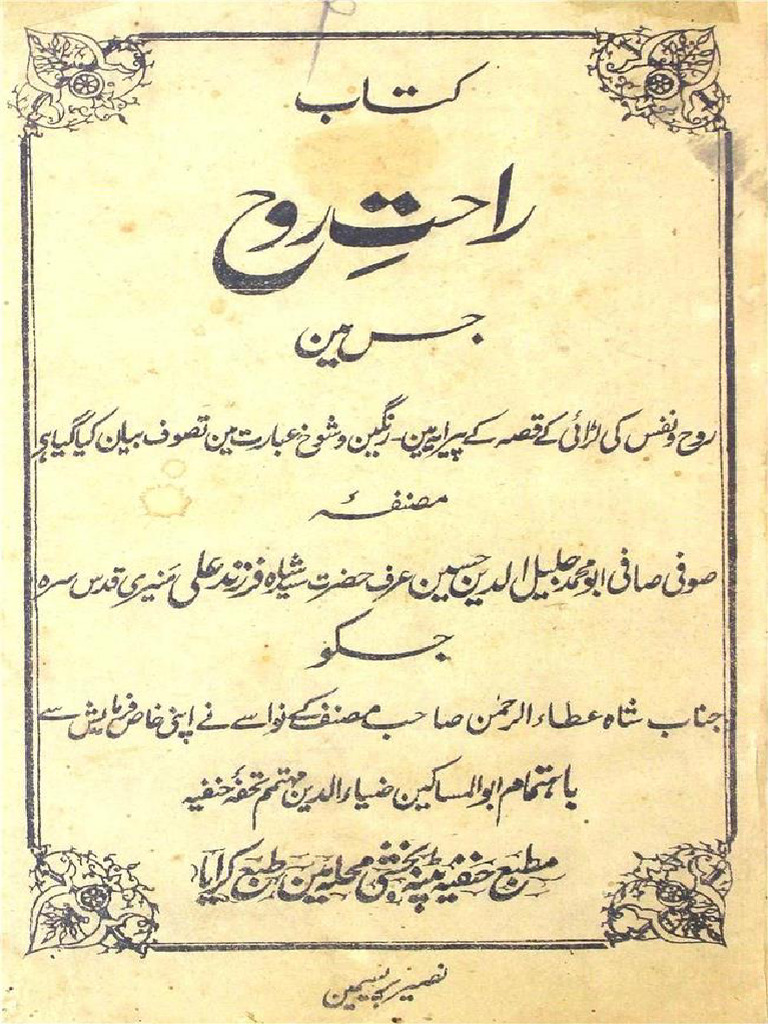 کتاب
راحتِ روح
جس مین
روح و نفس کی لڑائی کے قصہ کے پیرایہ مین۔ رنگین و شوخ عبارت مین تصوف بیان کیا گیا ہی
مصنفۂ
صوفی صافی ابو محمد جلیل الدین حسین عرف حضرت سید شاہ فرزند علی منیری قدس سرہ
جسکو
جناب شاہ عطاء الرحمٰن صاحب مصنف کے نواسے نے اپنی خاص فرمایش سے
باہتمام ابو المساکین ضیاء الدین مہتمم تحفۂ حنفیہ
مطبع حنفیہ پٹنہ بخشی محلہ مین طبع کرایا
نصیر